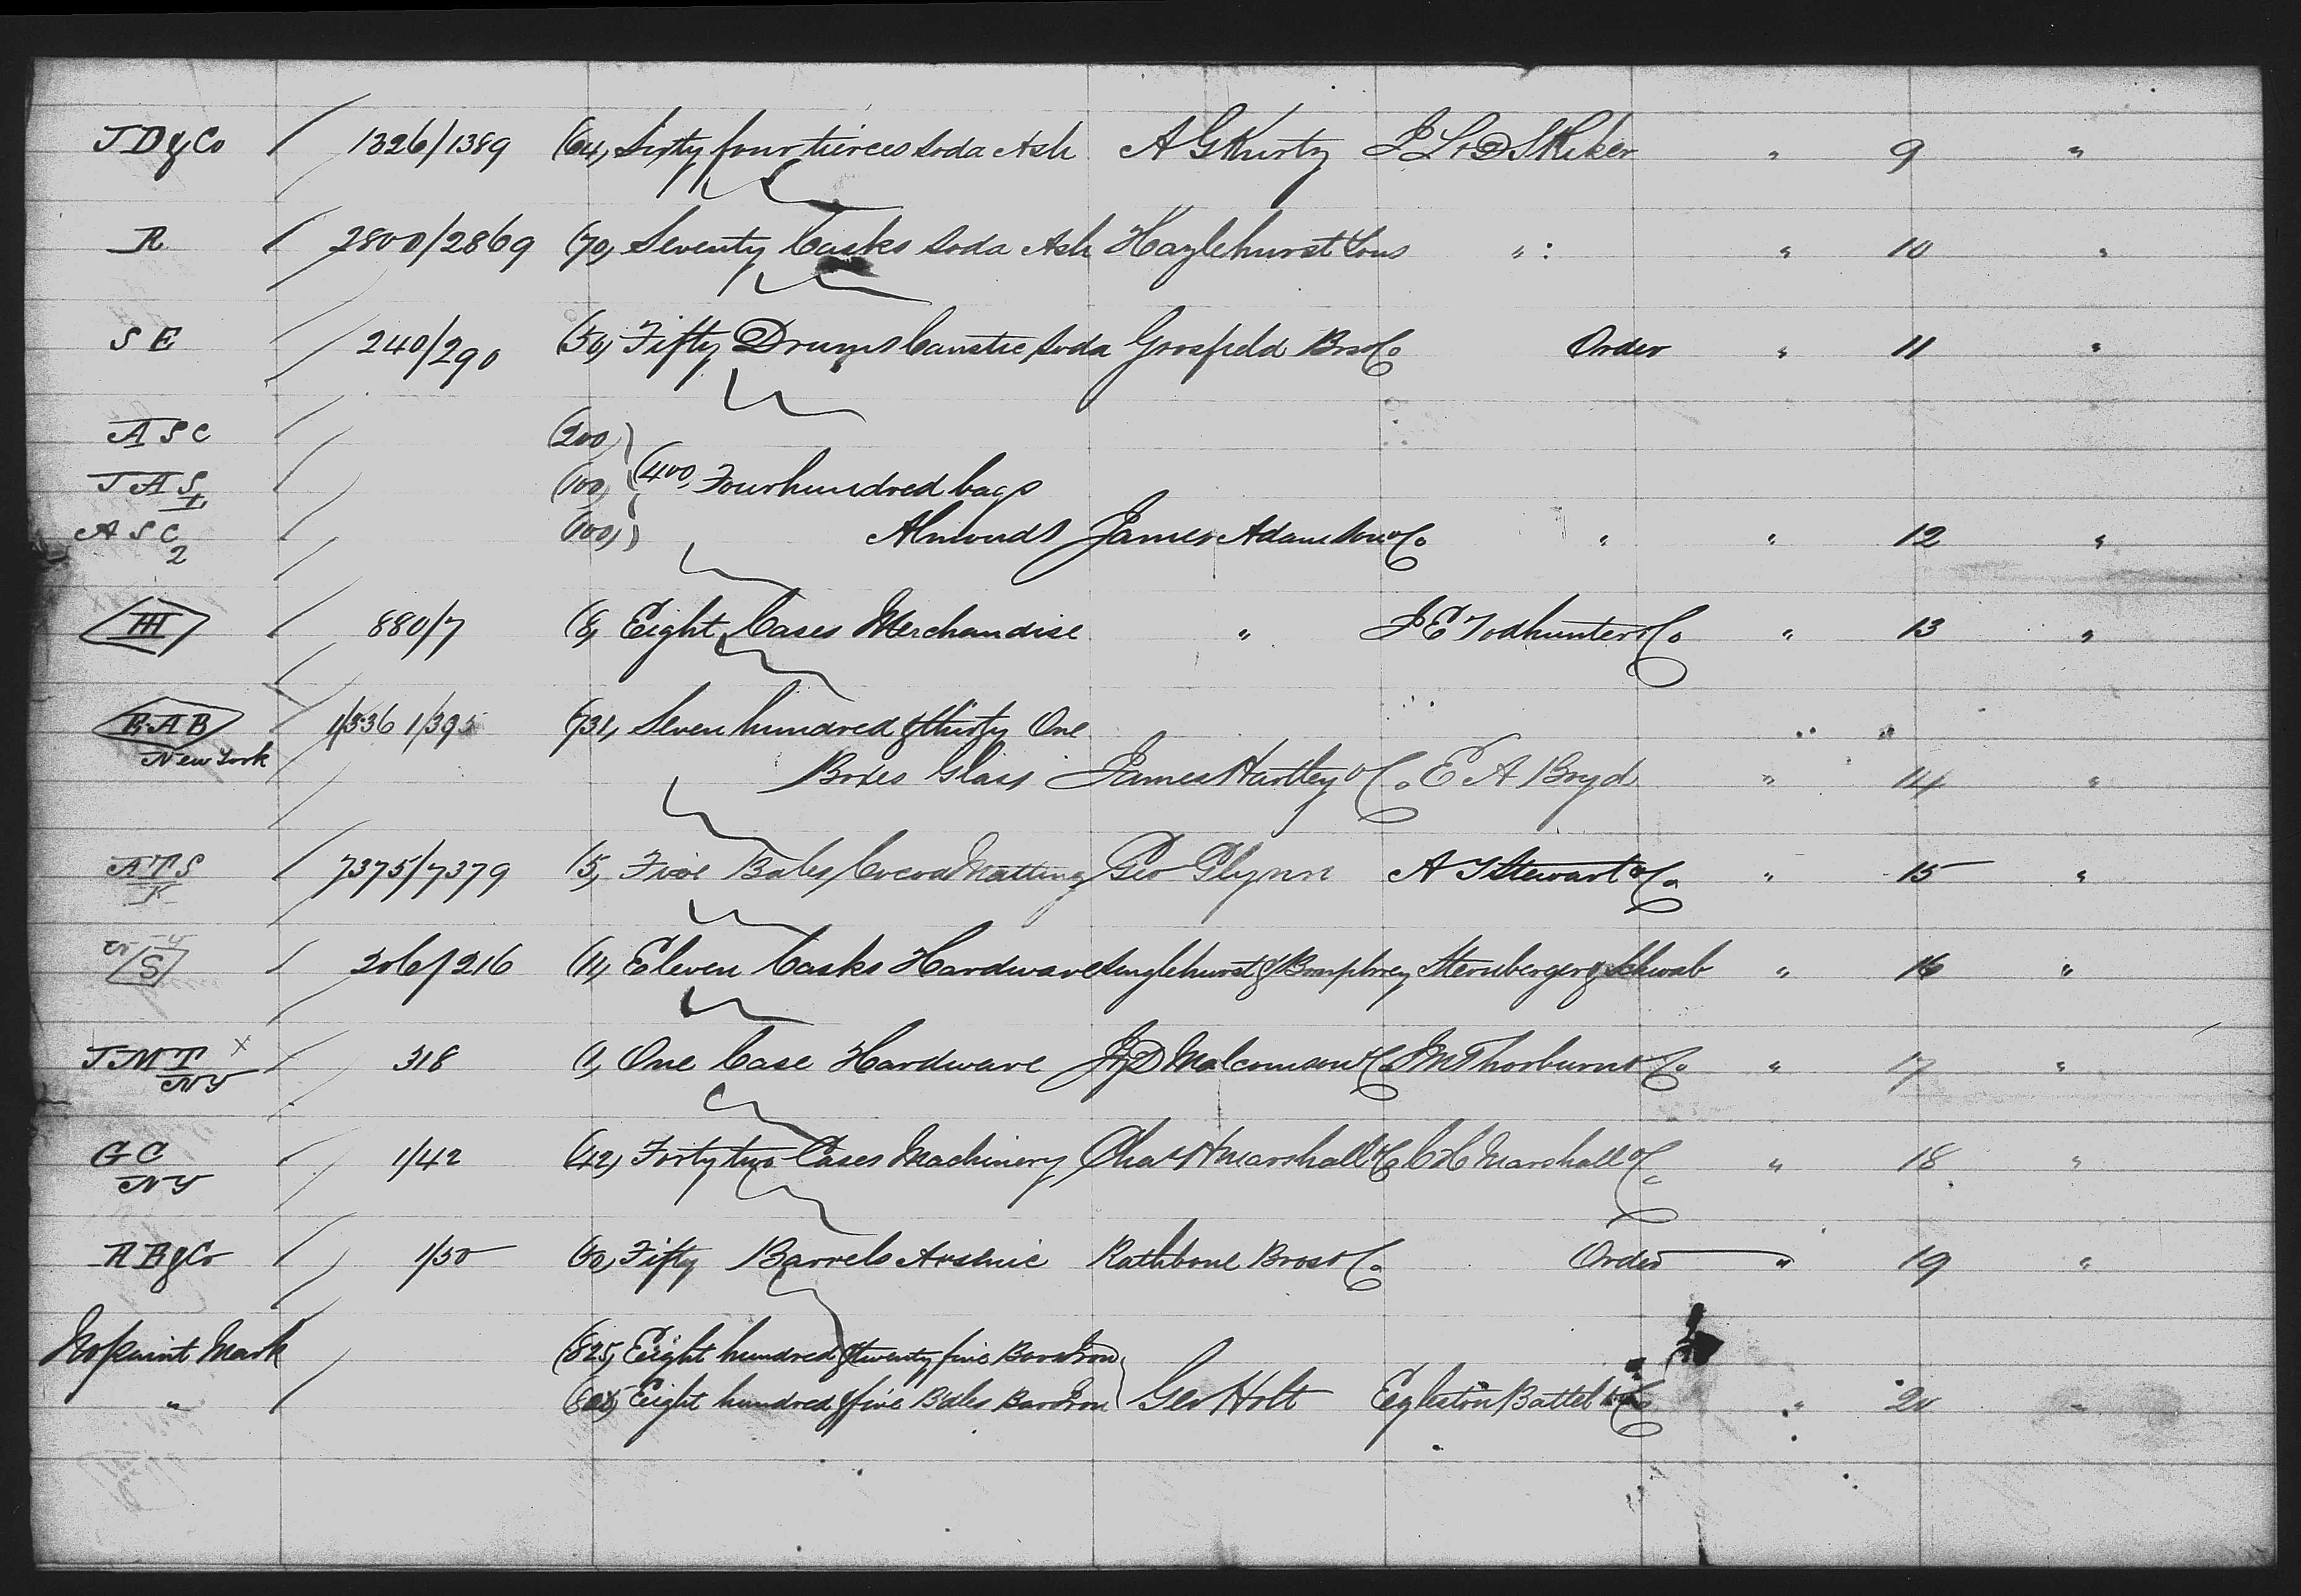 JD&Co 1326/1389 (64) Sixty four tierces Soda Ash A G Kurtz J L & D S Riker " 9 "
R 2800/2869 (70) Seventy Casks Soda Ash Hazlehurst Sons " " 10 "
S E 240/290 (50) Fifty Drums Caustic Soda Grosfield Bros&Co Order " 11 "
A S C (200)
J A S 1 (100) (400) Four hundred bags
A S C 2 (100) Almonds James Adamson&Co " " 12 "
880/7 (8) Eight Cases Merchandise " J E Todhunter&Co " 13 "
R A B 1/336 1/395 (731) Seven hundred & thirty One
New York Boxes Glass James Hartley &Co E A Boyd " 14 "
A T S K 7375/7379 (5) Five Bales Cocoa Matting Geo Glynn A T Stewart &Co " 15 "
S 206/216 (11) Eleven Casks Hardware & Bromphrey Sternberger & Schwab " 16 "
J M T X NY 318 (1) One Case Hardware J & D Malcomson &Co J M Thorburn & Co " 17 "
G C NY 1/42 (42) Forty two Cases Machinery Chas H Marshall &Co C H Marshall &Co " 18 "
A B & Co 1/50 (50) Fifty Barrels Arsenic Rathbone Bros & Co Order " 19 "
No paint Mark (825) Eight hundred & twenty five Bars Iron
" (805) Eight hundred & five Bdles Bar Iron Geo Holt Egleston Battel &Co " 20 "